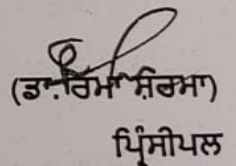 (ਡਾ. ਰਿਮਾ ਸ਼ਿਰਮਾ)
ਪ੍ਰਿੰਸੀਪਲ